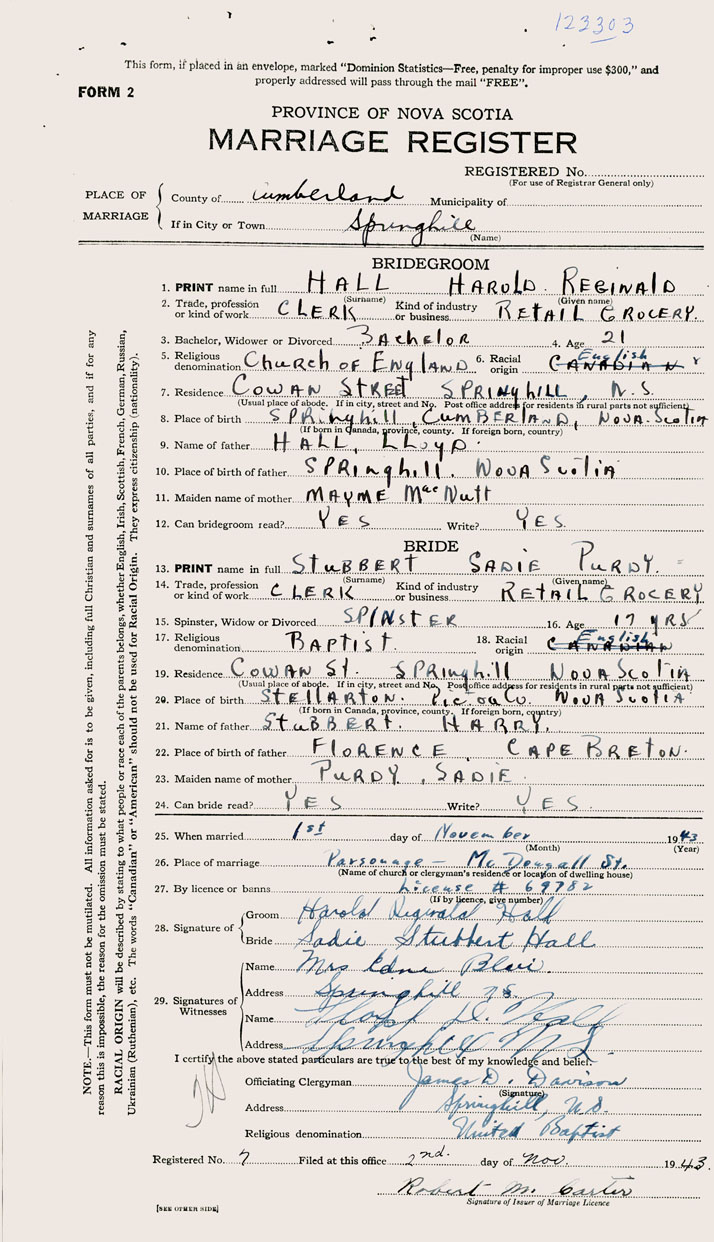 123303
This form, if placed in an envelope, marked "Dominion Statistics—Free, penalty for improper use $300," and
properly addressed will pass through the mail "FREE".
FORM 2
PROVINCE OF NOVA SCOTIA
MARRIAGE REGISTER
REGISTERED No.
(For use of Registrar General only)
PLACE OF MARRIAGE
County of Cumberland Municipality of
If in City or Town Springhill
(Name)
BRIDEGROOM
1. PRINT name in full HALL HAROLD REGINALD
(Surname) (Given name)
2. Trade, profession or kind of work CLERK Kind of industry or business RETAIL GROCERY
3. Bachelor, Widower or Divorced BACHELOR 4. Age 21
5. Religious denomination CHURCH OF ENGLAND 6. Racial origin CANADIAN English
7. Residence COWAN STREET SPRINGhILL, N.S.
(Usual place of abode. If in city, street and No. Post office address for residents in rural parts not sufficient)
8. Place of birth SPRINGhILL, CUMBERLAND, NOVA SCOTIA
(If born in Canada, province, county. If foreign born, country)
9. Name of father HALL, LLOYD.
10. Place of birth of father SPRINGhILL. NOVA SCOTIA
11. Maiden name of mother MAYME MacNUTT
12. Can bridegroom read? YES Write? YES
BRIDE
13. PRINT name in full STUBBERT SADIE PURDY.
(Surname) (Given name)
14. Trade, profession or kind of work CLERK Kind of industry or business RETAIL GROCERY
15. Spinster, Widow or Divorced SPINSTER 16. Age 17 YRS
17. Religious denomination BAPTIST. 18. Racial origin CANADIAN English
19. Residence COWAN ST. SPRINGhILL NOVA SCOTIA
(Usual place of abode. If in city, street and No. Post office address for residents in rural parts not sufficient)
20. Place of birth STELLARTON. NOVA SCOTIA
(If born in Canada, province, county. If foreign born, country)
21. Name of father STUBBERT. HARRY.
22. Place of birth of father FLORENCE, CAPE BRETON.
23. Maiden name of mother PURDY, SADIE
24. Can bride read? YES Write? YES
25. When married 1st day of November 1943
(Month) (Year)
26. Place of marriage Parsonage — McDougall St.
(Name of church or clergyman's residence or location of dwelling house)
27. By licence or banns License # 69782
(If by licence, give number)
28. Signature of
Groom Harold Reginald Hall
Bride Sadie Stubbert Hall
29. Signatures of Witnesses
Name Mrs Edna Blair.
Address Springhill NS
Name Lloyd D. Hall
Address Springhill N.S.
I certify the above stated particulars are true to the best of my knowledge and belief.
Officiating Clergyman James D. Davison
(Signature)
Address Springhill, N.S.
Religious denomination United Baptist
Registered No. 7 Filed at this office 2nd. day of Nov. 1943.
Robert M. Carter
Signature of Issuer of Marriage Licence
[SEE OTHER SIDE]
NOTE.—This form must not be mutilated. All information asked for is to be given, including full Christian and surnames of all parties, and if for any
reason this is impossible, the reason for the omission must be stated.
RACIAL ORIGIN will be described by stating to what people or race each of the parents belongs, whether English, Irish, Scottish, French, German, Russian,
Ukrainian (Ruthenian), etc. The words "Canadian" or "American" should not be used for Racial Origin. They express citizenship (nationality).